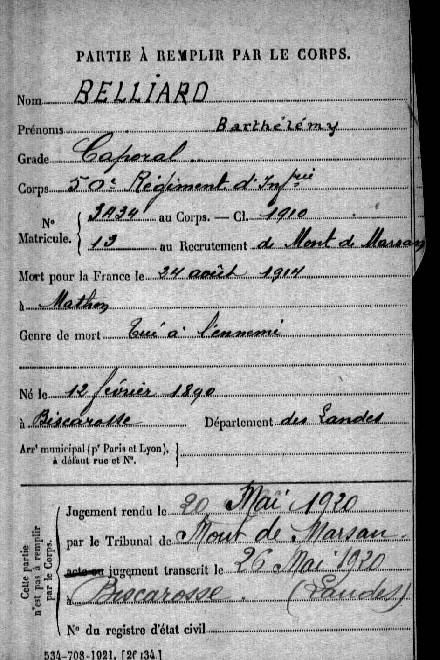 PARTIE À REMPLIR PAR LE CORPS.
Nom BELLIARD
Prénoms Barthélémy
Grade Caporal
Corps 50e Régiment d'Infrie
No Matricule. { 3434 au Corps. — Cl. 1910
13 au Recrutement de Mont de Marsan
Mort pour la France le 24 août 1914
à Mathon
Genre de mort Tué à l'ennemi
Né le 12 février 1890
à Biscarosse Département des Landes
Arrt municipal (pr Paris et Lyon), à défaut rue et No. }
Cette partie n'est pas à remplir par le Corps.
Jugement rendu le 20 Mai 1920
par le Tribunal de Mont de Marsan
acte ou jugement transcrit le 26 Mai 1920
à Biscarosse (Landes)
No du registre d'état civil
534-708-1921. [26434.]